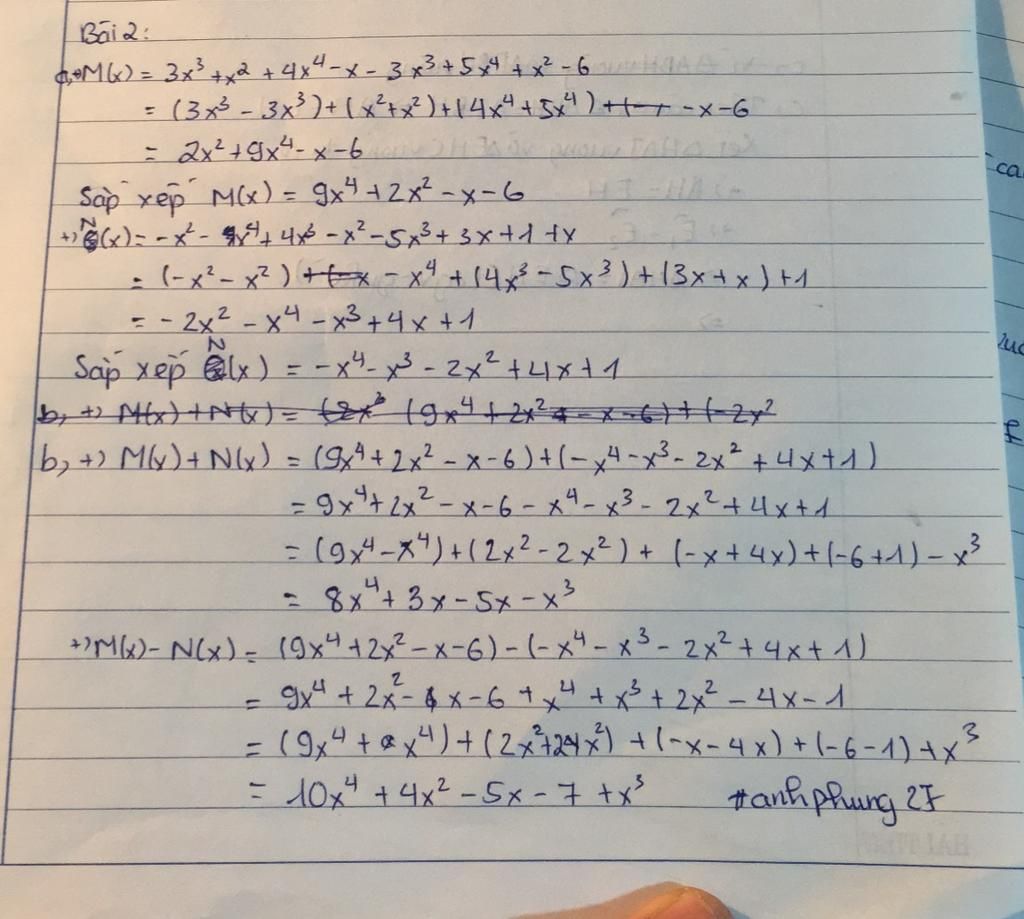 Bài 2:
a, +) M(x) = 3x³ + x² + 4x⁴ - x - 3x³ + 5x⁴ + x² - 6
= (3x³ - 3x³) + (x² + x²) + (4x⁴ + 5x⁴) - x - 6
= 2x² + 9x⁴ - x - 6
Sắp xếp M(x) = 9x⁴ + 2x² - x - 6
+) N(x) = -x² - x⁴ + 4x³ - x² - 5x³ + 3x + 1 + x
= (-x² - x²) - x⁴ + (4x³ - 5x³) + (3x + x) + 1
= - 2x² - x⁴ - x³ + 4x + 1
Sắp xếp N(x) = -x⁴ - x³ - 2x² + 4x + 1
b, +) M(x) + N(x) = (9x⁴ + 2x² - x - 6) + (-2x²
b, +) M(x) + N(x) = (9x⁴ + 2x² - x - 6) + (-x⁴ - x³ - 2x² + 4x + 1)
= 9x⁴ + 2x² - x - 6 - x⁴ - x³ - 2x² + 4x + 1
= (9x⁴ - x⁴) + (2x² - 2x²) + (-x + 4x) + (-6 + 1) - x³
= 8x⁴ + 3x - 5x - x³
+) M(x) - N(x) = (9x⁴ + 2x² - x - 6) - (-x⁴ - x³ - 2x² + 4x + 1)
= 9x⁴ + 2x² - x - 6 + x⁴ + x³ + 2x² - 4x - 1
= (9x⁴ + x⁴) + (2x² + 2x²) + (-x - 4x) + (-6 - 1) + x³
= 10x⁴ + 4x² - 5x - 7 + x³
#anhphung27